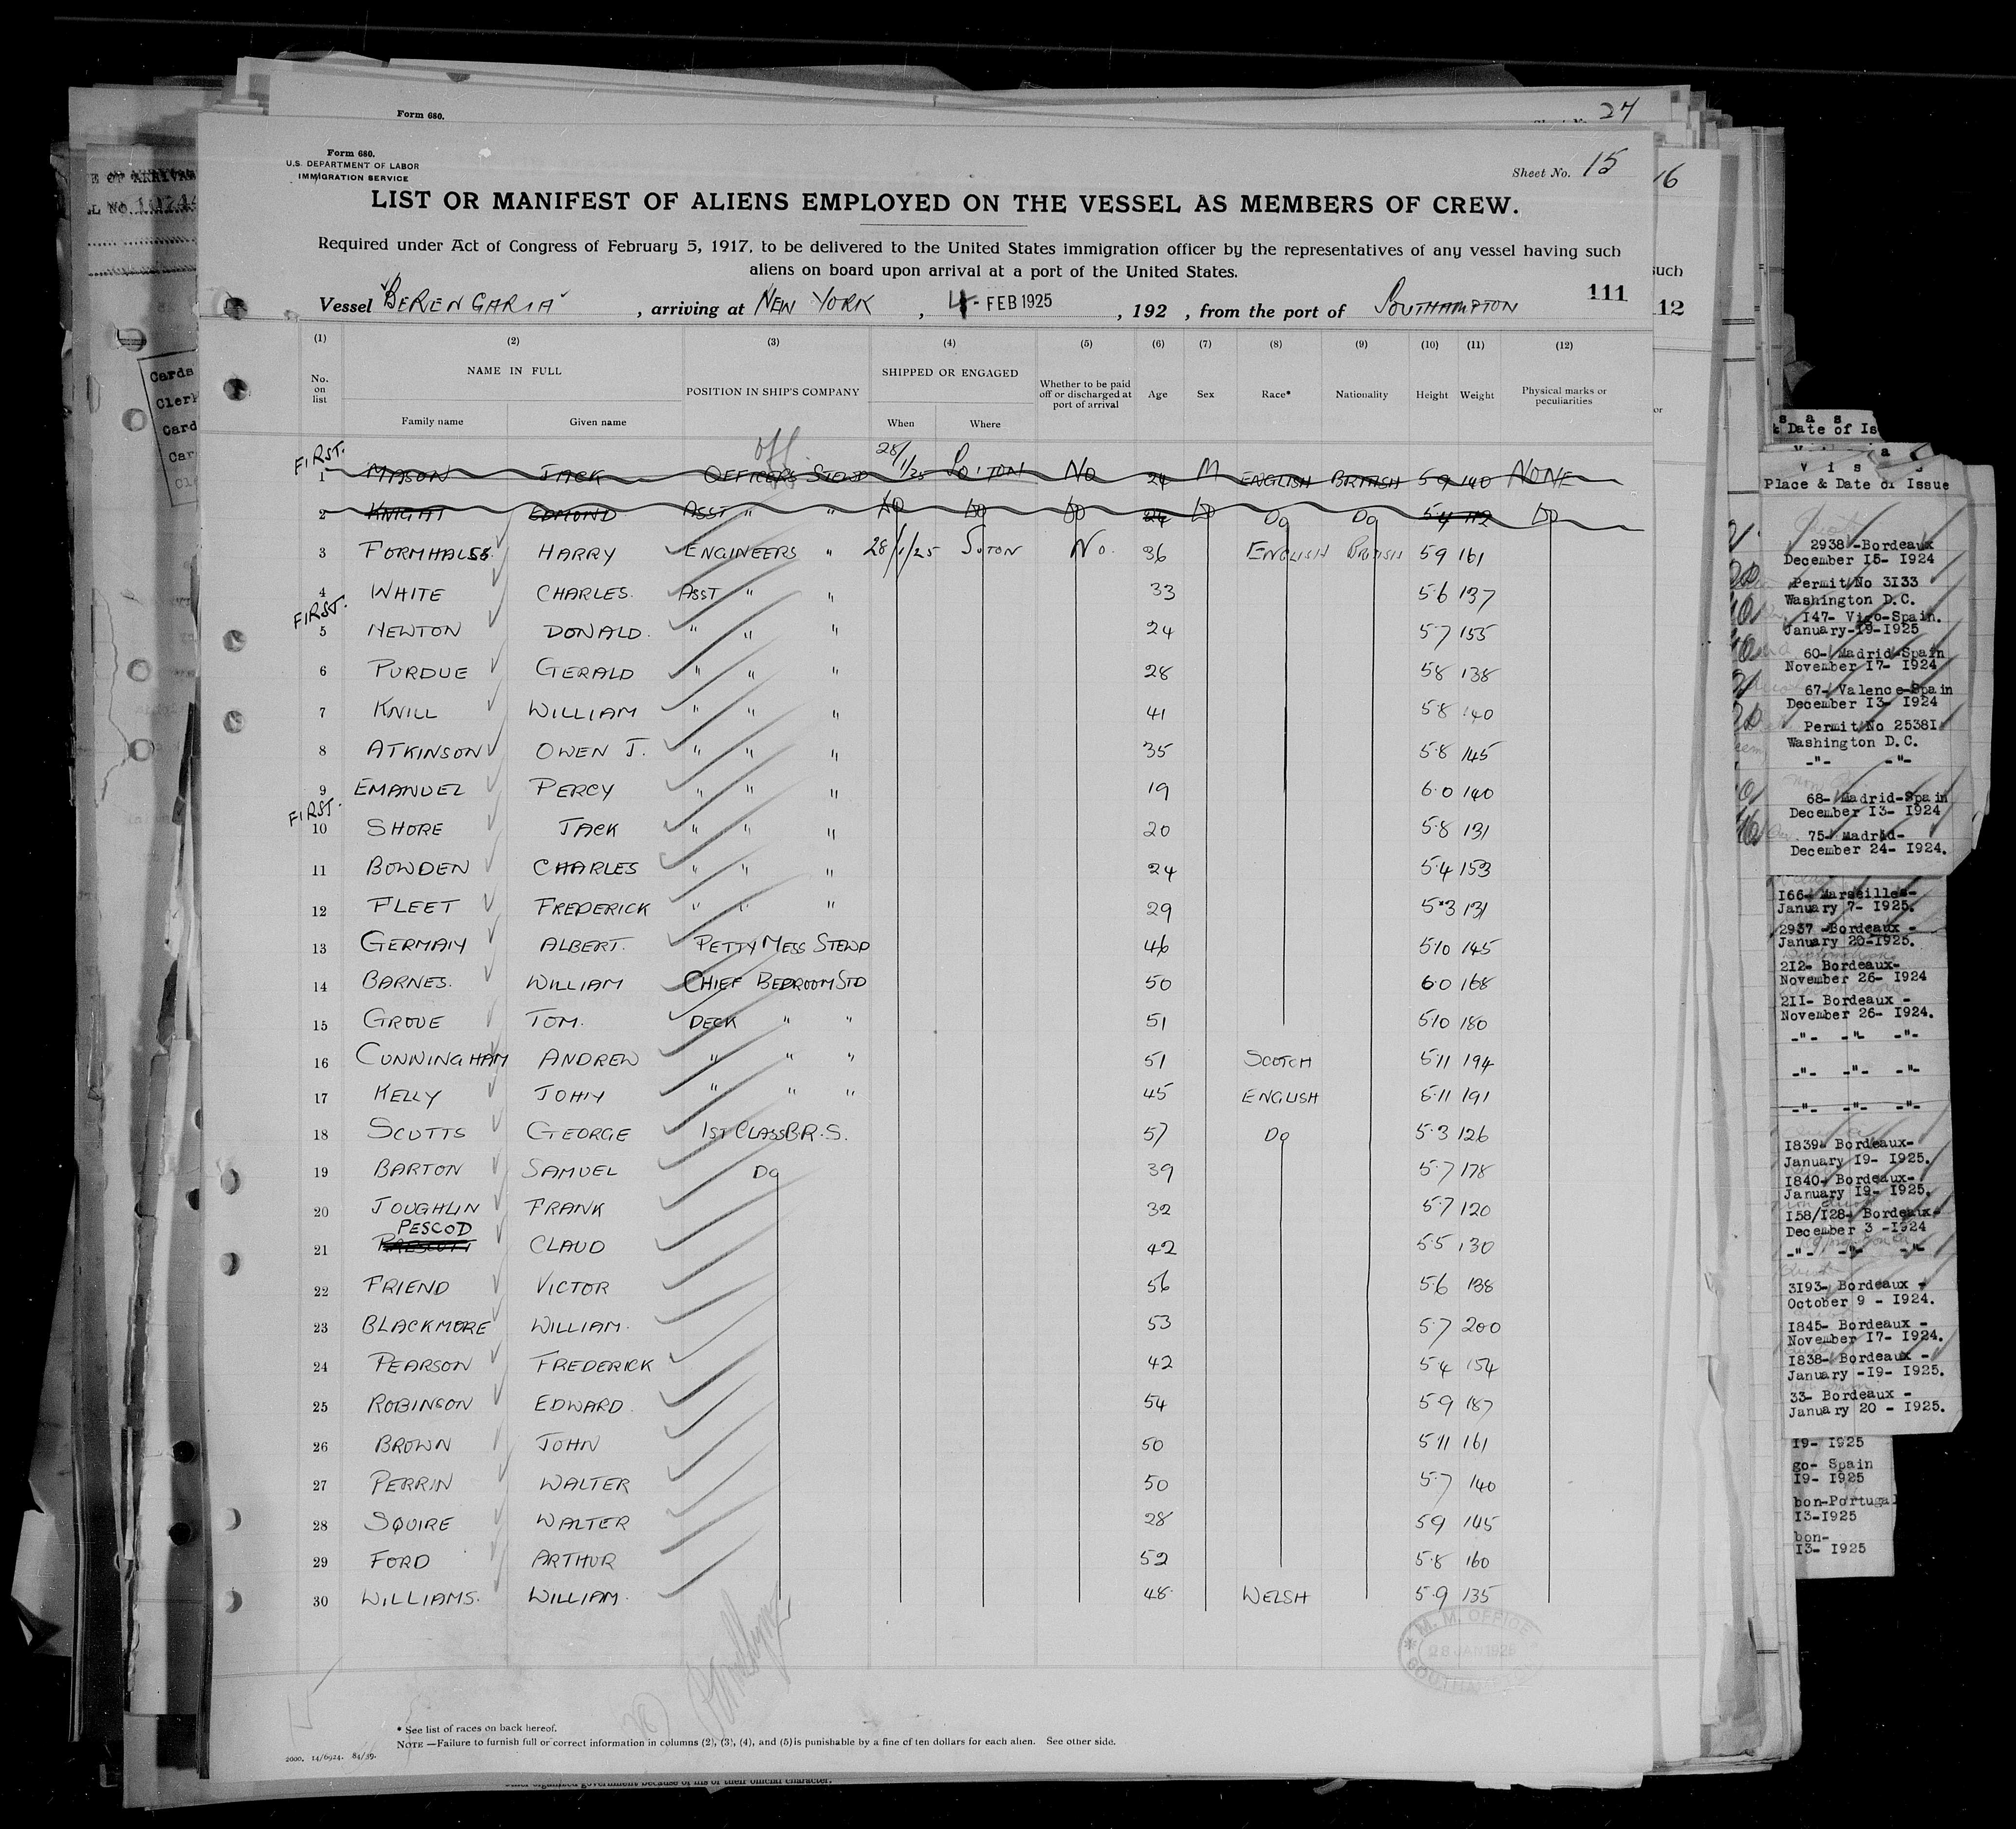 Form 680.
27
Form 680.
U.S. DEPARTMENT OF LABOR
IMMIGRATION SERVICE
Sheet No. 15
16
LIST OR MANIFEST OF ALIENS EMPLOYED ON THE VESSEL AS MEMBERS OF CREW.
Required under Act of Congress of February 5, 1917, to be delivered to the United States immigration officer by the representatives of any vessel having such
aliens on board upon arrival at a port of the United States.
111
Vessel "BERENGARIA", arriving at NEW YORK, 4 - FEB 1925, 192 , from the port of SOUTHAMPTON
such
12
(1) (2) (3) (4) (5) (6) (7) (8) (9) (10) (11) (12)
No. on list NAME IN FULL POSITION IN SHIP'S COMPANY SHIPPED OR ENGAGED Whether to be paid off or discharged at port of arrival Age Sex Race* Nationality Height Weight Physical marks or peculiarities
Family name Given name When Where
off
FIRST.
1 MASON JACK OFFICERS STEWD 28/1/25 SO'TON NO 24 M ENGLISH BRITISH 5 9 140 NONE
2 KNIGHT EDMOND ASST " " DO DO DO 24 DO DO DO 5.4 112 DO
3 FORMHALSS. HARRY ENGINEERS " 28/1/25 S'TON NO. 36 ENGLISH BRITISH 5 9 161
4 WHITE CHARLES. ASST " " 33 5.6 137
FIRST.
5 NEWTON DONALD. " " " 24 5.7 155
6 PURDUE GERALD " " " 28 5 8 138
7 KNILL WILLIAM " " " 41 5.8 140
8 ATKINSON OWEN J. " " " 35 5.8 145
9 EMANUEL PERCY " " " 19 6.0 140
FIRST.
10 SHORE JACK " " " 20 5.8 131
11 BOWDEN CHARLES " " " 24 5.4 153
12 FLEET FREDERICK " " " 29 5.3 131
13 GERMAIY ALBERT. PETTY MESS STEWD 46 5.10 145
14 BARNES. WILLIAM CHIEF BEDROOM STD 50 6.0 168
15 GROVE TOM. DECK " " 51 5.10 180
16 CUNNINGHAM ANDREW " " " 51 SCOTCH 5.11 194
17 KELLY JOHN " " " 45 ENGLISH 5.11 191
18 SCUTTS GEORGE 1ST CLASS B.R.S. 57 DO 5.3 126
19 BARTON SAMUEL DO 39 5.7 178
20 JOUGHLIN FRANK 32 5.7 120
PESCOD
21 PRESCOTT CLAUD 42 5.5 130
22 FRIEND VICTOR 56 5.6 138
23 BLACKMORE WILLIAM. 53 5.7 200
24 PEARSON FREDERICK 42 5.4 154
25 ROBINSON EDWARD. 54 5 9 187
26 BROWN JOHN 50 5 11 161
27 PERRIN WALTER 50 5.7 140
28 SQUIRE WALTER 28 5 9 145
29 FORD ARTHUR 52 5.8 160
30 WILLIAMS. WILLIAM. 48 WELSH 5.9 135
M. M. OFFICE
28 JAN 1925
* See list of races on back hereof.
NOTE —Failure to furnish full or correct information in columns (2), (3), (4), and (5) is punishable by a fine of ten dollars for each alien. See other side.
2000. 14/6924. 84/39.
other organized government because of his or their official character.
Cards
Date of Is
Visas
Place & Date of Issue
2938 -Bordeaux
December 15- 1924
Permit No 3133
Washington D.C.
147- Vigo-Spain.
January-19-1925
60- Madrid-Spain
November 17- 1924
67- Valence-Spain
December 13- 1924
Permit No 25381
Washington D.C.
-"- -"-
68- Madrid-Spain
December 13- 1924
75- Madrid-
December 24- 1924.
166- Marseilles-
January 7- 1925.
2937 -Bordeaux -
January 20-1925.
212- Bordeaux-
November 26- 1924
211- Bordeaux -
November 26- 1924.
-"- -"- -"-
-"- -"- -"-
-"- -"- -"-
1839- Bordeaux-
January 19- 1925.
1840- Bordeaux-
January 19- 1925.
158/128- Bordeaux-
December 3 -1924
-"- -"- -"-
3193- Bordeaux -
October 9 - 1924.
1845- Bordeaux -
November 17- 1924.
1838- Bordeaux -
January -19- 1925.
33- Bordeaux -
January 20 - 1925.
19- 1925
go- Spain
19- 1925
bon-Portugal
13-1925
bon-
13- 1925